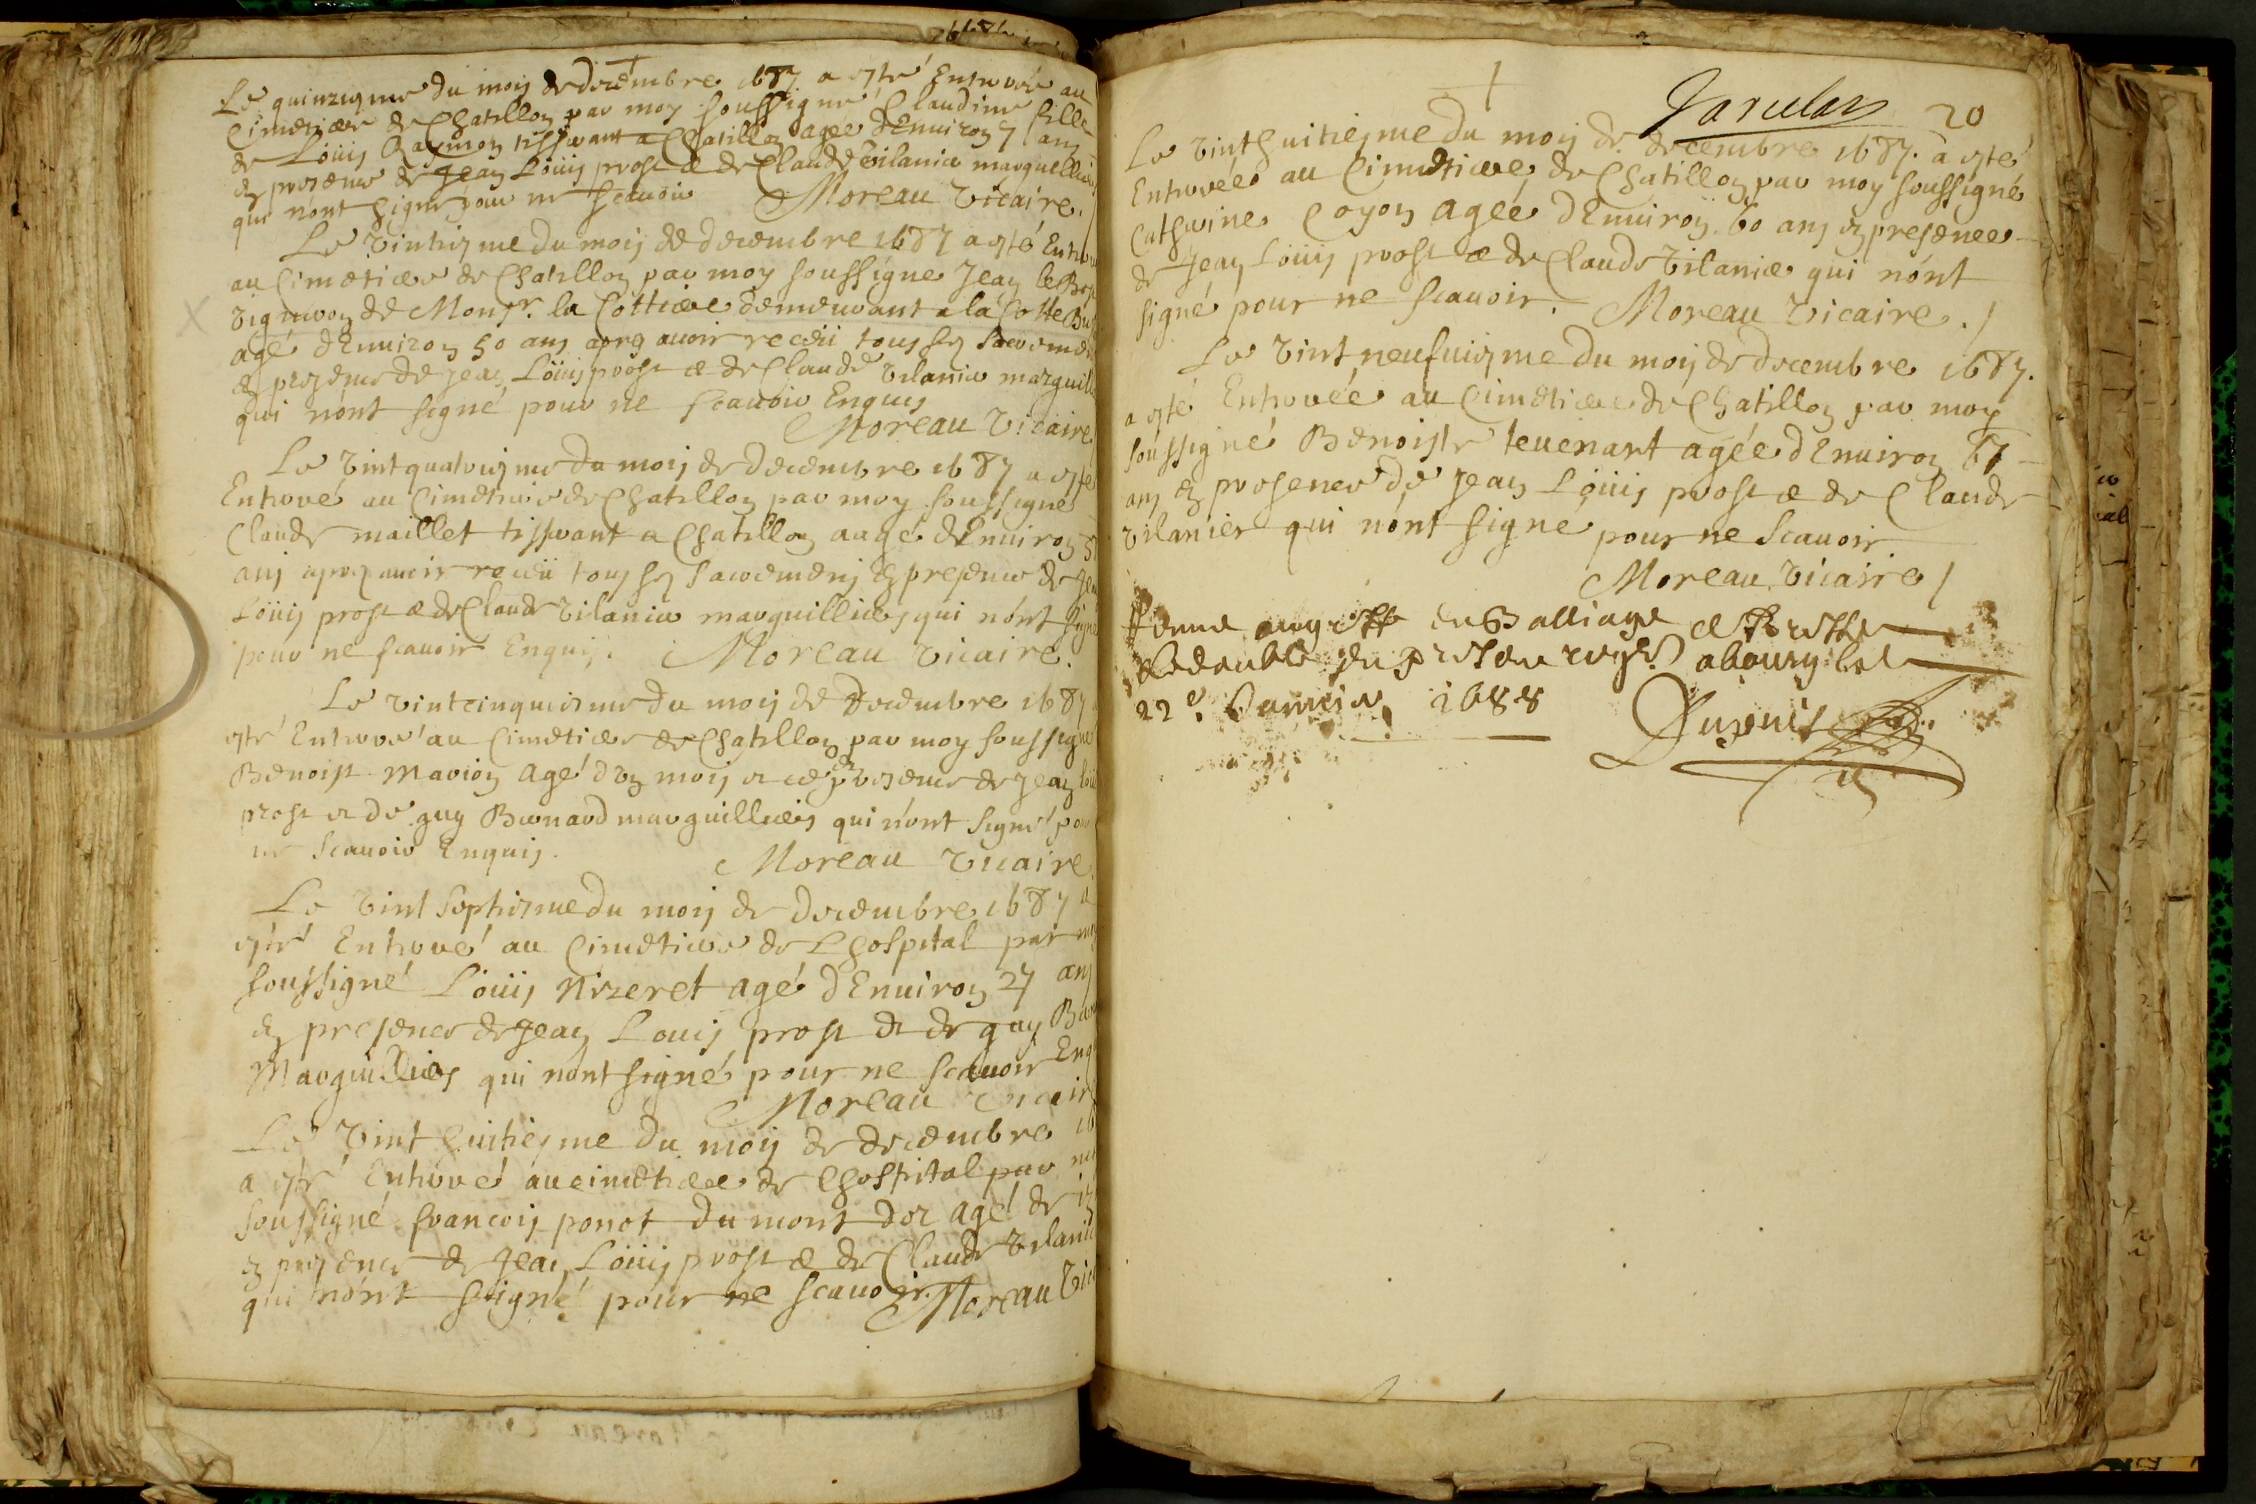 Le quinziesme du mois de decembre 1687 a esté Enterrée au
Cimetiere de Chatillon par moy soussigné Claudine fille
de Loüis Raymon tisserant a Chatillon agée d'Enuiron 7 ans
en presence de Jean Loüis prost et de Claude Vilanier marguilliers
qui n'ont signé pour ne scauoir Moreau Vicaire.
Le Vintiesme du mois de decembre 1687 a esté
au Cimetiere de Chatillon par moy soussigné Jean
Vigneron de Monsr. la Cottiere demeurant a la Coste
agé d'Enuiron 50 ans apres auoir receü tous ses
en presence de Jean Loüis prost et de Claude Vilanier
qui n'ont signé pour ne scauoir Enquis
Moreau Vicaire
Le Vintquatriesme du mois de decembre 1687 a esté
Enterré au Cimetiere de Chatillon par moy soussigné
Claude maillet tisserant a Chatillon aagé d'Enuiron
ans apres auoir receü tous ses sacremens en presence de
Loüis prost et de Claude Vilanier marguilliers qui n'ont signé
pour ne scauoir Enquis. Moreau Vicaire.
Le Vintcinquiesme du mois de Decembre 1687
esté Enterré au Cimetiere de Chatillon par moy soussigné
Benoist Marion agé d'un mois et ce en presence de Jean
prost et de guy Bernard marguilliers qui n'ont signé
ne scauoir Enquis. Moreau Vicaire
Le Vint septiesme du mois de decembre 1687 a
esté Enterré au Cimetiere de Lhospital par
soussigné Loüis Nizeret agé d'Enuiron 27 ans
en presence de Jean Louis prost et de guy
Marguilliers qui n'ont signé pour ne scauoir
Moreau Vicaire
Le Vint huitiesme du mois de decembre
a esté Enterré au cimetiere de Lhospital par
soussigné francois ponot du mont dor agé de
en presence de Jean Loüis prost et de Claude
qui n'ont signé pour ne scauoir. Moreau
20
Le Vinthuitiesme du mois de decembre 1687. a esté
Enterrée au Cimetiere de Chatillon par moy soussigné
Catherine Coyon agée d'Enuiron 60 ans en presence
de Jean Loüis prost et de Claude Vilanier qui n'ont
signé pour ne scauoir. Moreau Vicaire.
Le Vint neufuiesme du mois de decembre 1687.
a esté Enterrée au Cimetiere de Chatillon par moy
soussigné Benoiste teuenart agée d'Enuiron
ans en presence de Jean Loüis prost et de Claude
Vilanier qui n'ont signé pour ne scauoir.
Moreau Vicaire
au greffe du Balliage de Bresse
Le double du present a bourg le
22e. Januier 1688
Dupuis